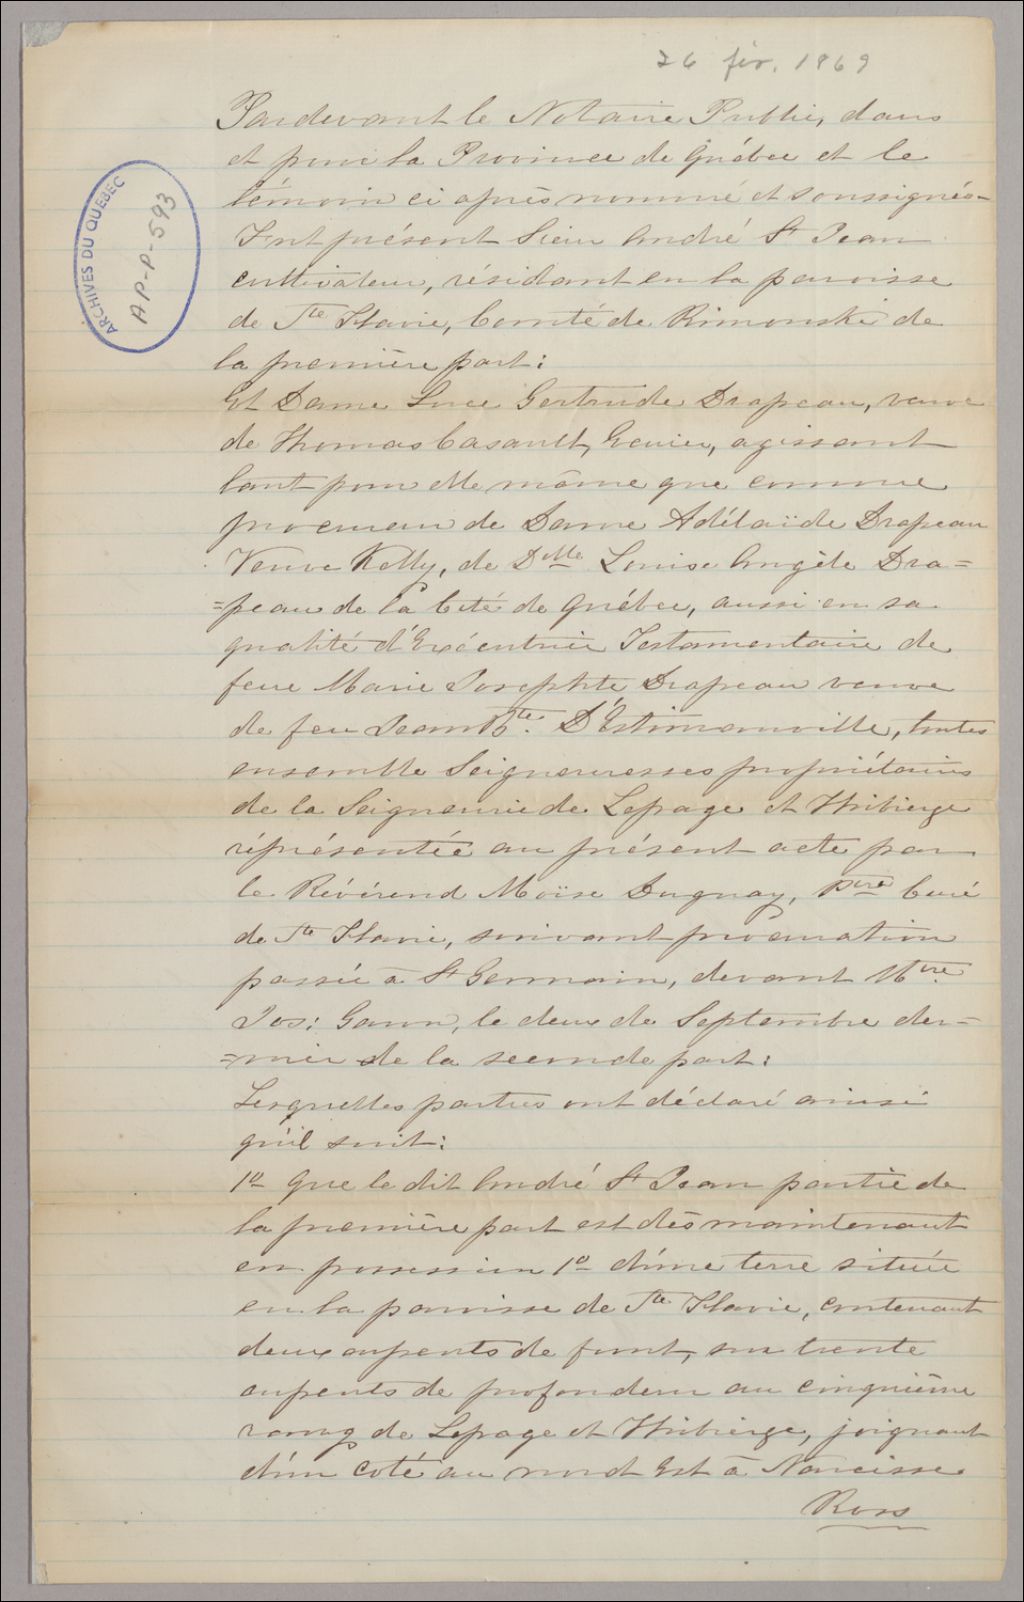 26 fév. 1869
ARCHIVES DU QUEBEC
AP-P-593
Pardevant le Notaire Public, dans
et pour la Province de Québec et le
témoin ci après nommé et soussignés-
Fut présent Sieur André St Jean
cultivateur, résidant en la paroisse
de Ste Flavie, Comté de Rimouski de
la première part:
Et Dame Luce Gertrude Drapeau, veuve
de Thomas Casault, Ecuier, agissant
tant pour elle même que comme
procureur de Dame Adélaïde Drapeau
Veuve Kelly, de Dlle Louise Angèle Dra=
=peau de la Cité de Québec, aussi en sa
qualité d'Exécutrice Testamentaire de
feue Marie Josephte Drapeau veuve
de feu Jean Bte. D'Estimauville, toutes
ensemble Seigneuresses propriétaires
de la Seigneurie de Lepage et Thibierge
réprésentée au présent acte par
le Révérend Moïse Duguay, Ptre Curé
de Ste Flavie, suivant procuration
passée à St Germain, devant Mtre.
Jos: Garon, le deux de Septembre der=
=nier de la seconde part:
Lesquelles parties ont déclaré ainsi
qu'il suit:
1o Que le dit André St Jean partie de
la première part est dès maintenant
en possession 1o d'une terre située
en la paroisse de Ste Flavie, contenant
deux arpents de front, sur trente
arpents de profondeur au cinquième
rang de Lepage et Thibierge, joignant
d'un coté au nord Est à Narcisse
Ross